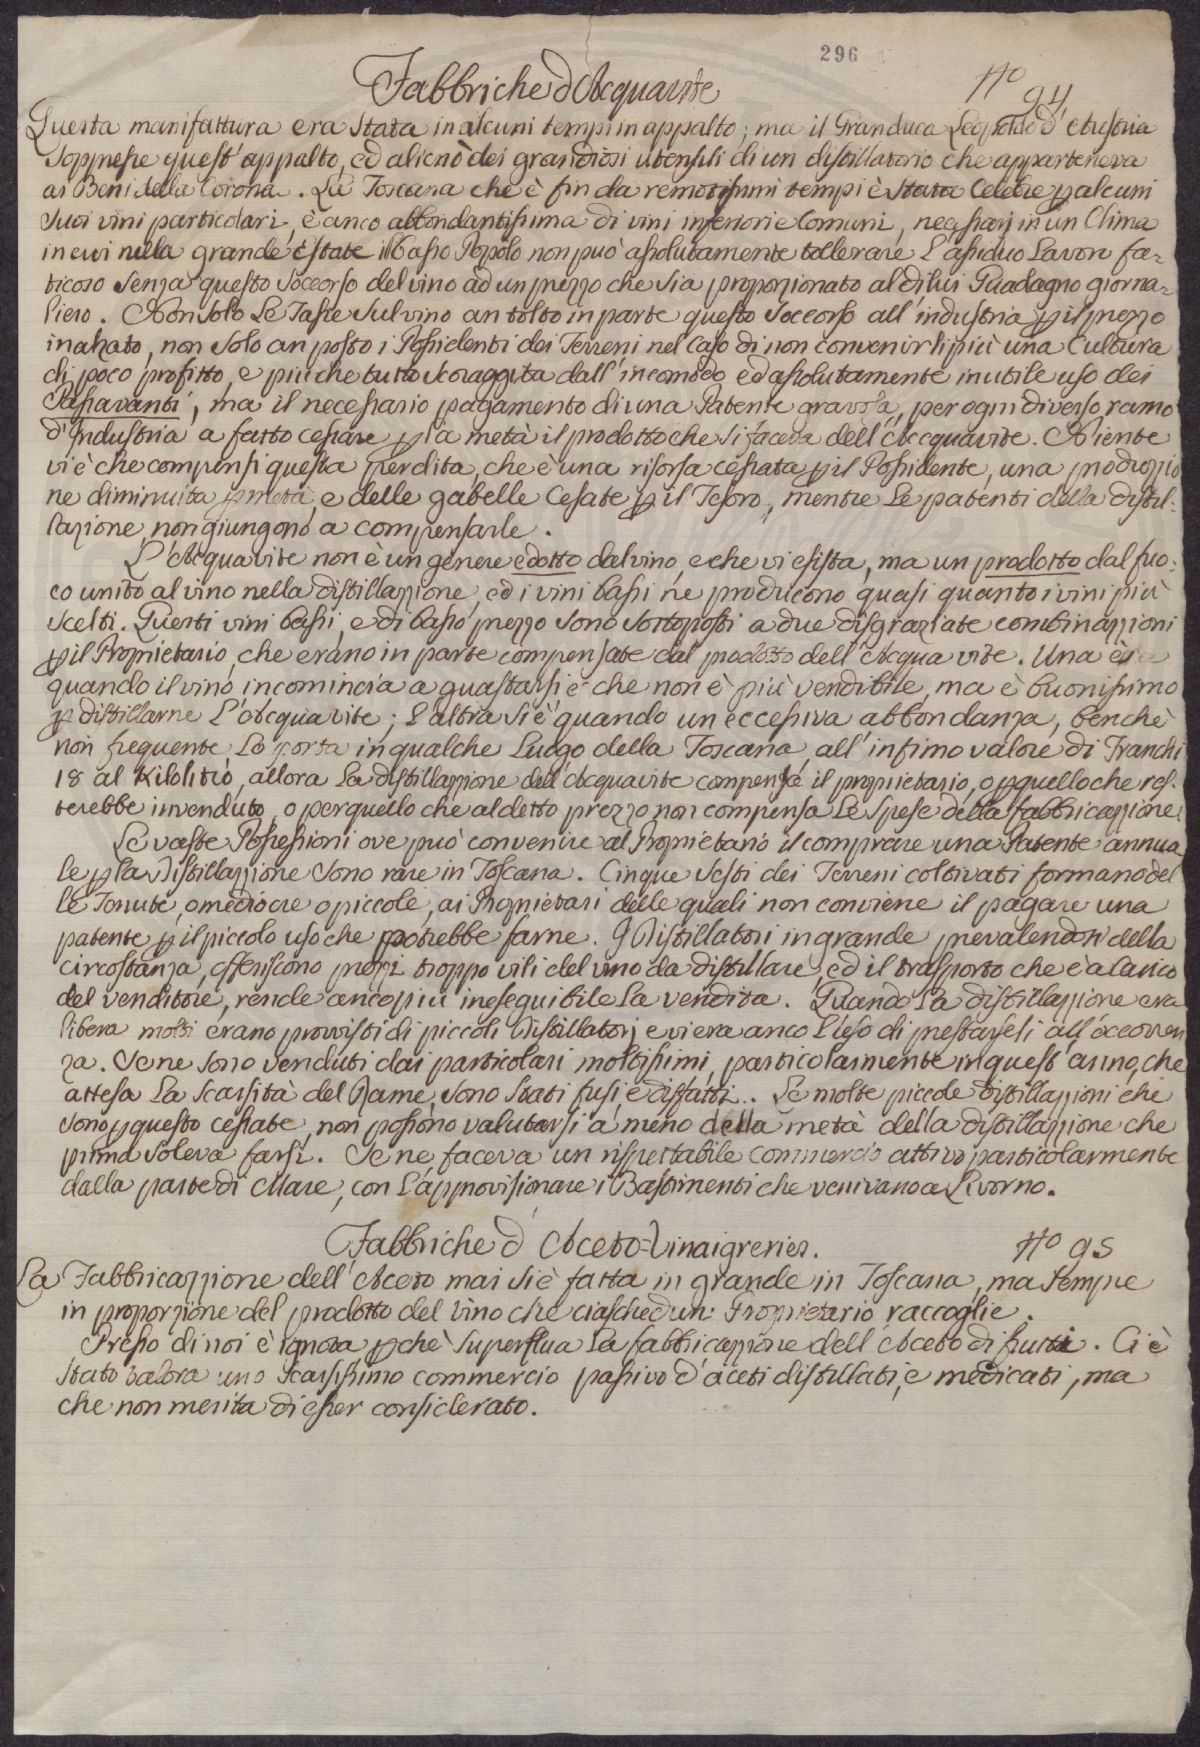 296
Fabbriche d'Acquavite
N.o 94
Questa manifattura era stata in alcuni tempi in appalto; ma il Granduca Leopoldo d'Austria
soppresse quest'appalto, ed alienò dei grandiosi utensili di un distillatorio che apparteneva
ai Beni della Corona. La Toscana che è fin da remotissimi tempi è stata celebre p alcuni
suoi vini particolari, è anco abbondantissima di vini inferiori e Comuni, necessarj in un Clima
in cui nella grande estate il basso Popolo non può assolutamente tollerare l'assiduo Lavoro fa=
ticoso senza questo soccorso del vino ad un prezzo che sia proporzionato al di lui Guadagno giorna=
liero. Non solo Le Tasse sul vino an tolto in parte questo soccorso all'industria p il prezzo
inalzato, non solo an posto i Possidenti dei Terreni nel caso di non convenirli più una Cultura
di poco profitto, e più che tutto scoraggita dall'incomodo ed assolutamente inutile uso dei
Passavanti, ma il necessario pagamento di una Patente gravosa, per ogni diverso ramo
d'Industria a fatto cessare p la metà il prodotto che si faceva dell'Accquavite. Niente
vi è che compensi questa perdita, che è una risorsa cessata p il Possidente, una produzzio
ne diminuita p metà, e delle gabelle Cessate p il Tesoro, mentre Le patenti della distil=
lazione non giungono a compensarle.
L'Acquavite non è un genere edotto dal vino, e che vi esista, ma un prodotto dal fuo=
co unito al vino nella distillazzione, ed i vini bassi ne producono quasi quanto i vini più
scelti. Questi vini bassi, e di basso prezzo sono sottoposti a due disgraziate combinazzioni
p il Proprietario, che erano in parte compensate dal prodotto dell'Acqua vite. Una è
quando il vino incomincia a guastarsi e che non è più vendibile, ma è buonissimo
p distillarne L'Acquavite; L'altra si è quando un eccessiva abbondanza, benchè
non frequente Lo porta in qualche Luogo della Toscana, all'infimo valore di Franchi
18 al Kilolitro, allora La distillazzione dell'Acquavite compensa il proprietario, o p quello che res=
terebbe invenduto, o per quello che al detto prezzo non compensa Le spese della fabbricazzione.
Le vaste Possessioni ove può convenire al Proprietario il comprare una Patente annua
le p la Distillazzione sono rare in Toscana. Cinque sesti dei Terreni coltivati formano del
le Tenute, o mediocre o piccole, ai Proprietari delle quali non conviene il pagare una
patente p il piccolo uso che potrebbe farne. I Distillatori in grande prevalendosi della
circostanza, offeriscono prezzi troppo vili del vino da distillare, ed il trasporto che è a Carico
del venditore, rende anco più ineseguibile La vendita. Quando La distillazzione era
libera molti erano provvisti di piccoli Distillatorj e vi era anco L'uso di prestarseli all'occorren
za. Se ne sono venduti dai particolari moltissimi, particolarmente in quest'anno, che
attesa La scarsità del Rame, sono stati fusi, e disfatti. Le molte piccole distillazzioni che
sono p questo cessate, non possono valutarsi a meno della metà della distillazzione che
prima soleva farsi. Se ne faceva un rispettabile commercio attivo particolarmente
dalla parte di Mare, con L'approvisionare i Bastimenti che venivano a Livorno.
Fabbriche d'Aceto=Vinaigreries.
N.o 95
La Fabbricazzione dell'Aceto mai si è fatta in grande in Toscana, ma sempre
in proporzione del prodotto del vino che ciaschedun Proprietario raccoglie.
Presso di noi è ignota p chè superflua La fabbricazzione dell'Aceto di frutti. Ci è
stato talora uno scarsissimo commercio passivo d'aceti distillati, e medicati, ma
che non merita di esser considerato.